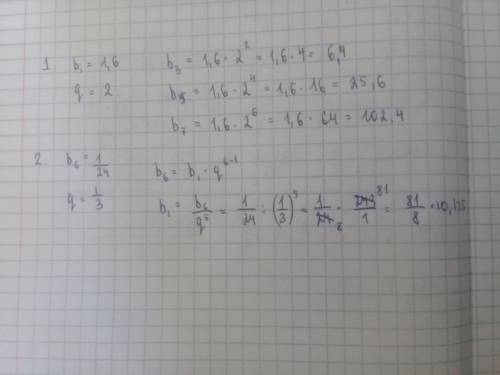 1. b₁ = 1,6 b₃ = 1,6 · 2² = 1,6 · 4 = 6,4
q = 2 b₅ = 1,6 · 2⁴ = 1,6 · 16 = 25,6
b₇ = 1,6 · 2⁶ = 1,6 · 64 = 102,4
2. b₆ = 1/24 b₆ = b₁ · q⁶⁻¹
q = 1/3 b₁ = b₆/q⁵ = 1/24 : (1/3)⁵ = 1/24 8 · 243 81/1 = 81/8 = 10,125